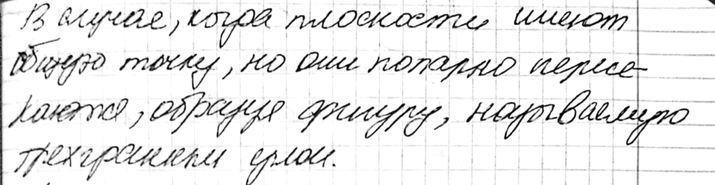 В случае, когда плоскости имеют
общую точку, но они попарно пересе-
каются, образуя фигуру, называемую
трехгранным углом.